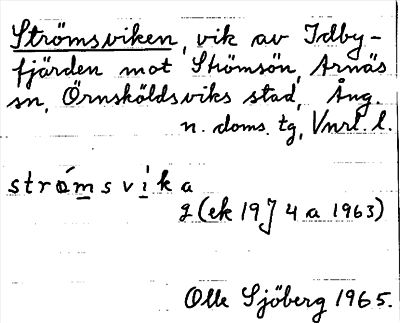 Strömsviken, vik av Idby-
fjärden mot Strömsön, Arnäs
sn, Örnsköldsviks stad, Ång.
n. doms. tg, Vnrl. l.
strö́msvi̍ka
g (ek 19 4 a 1963)
Olle Sjöberg 1965.